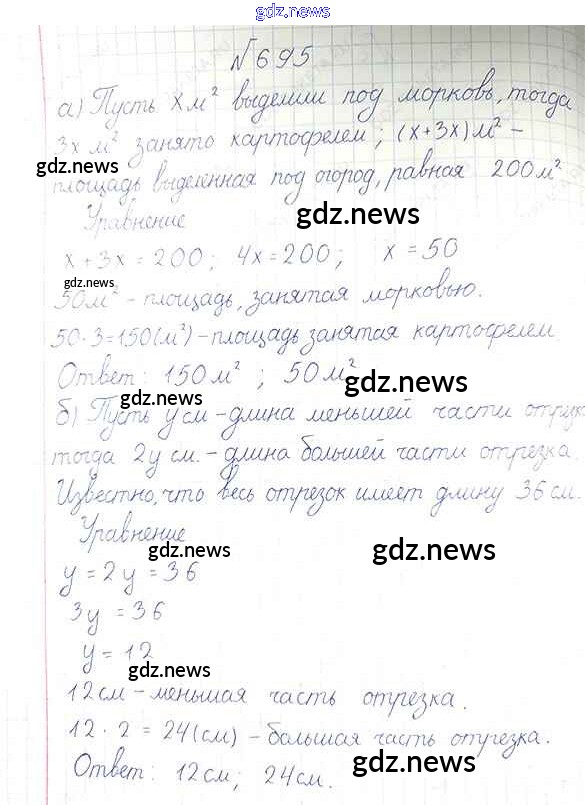 gdz.news
№695
а) Пусть x м² выделили под морковь, тогда
3x м² занято картофелем; (x+3x) м² -
gdz.news
площадь выделенная под огород, равная 200 м²
Уравнение
gdz.news
x + 3x = 200; 4x = 200; x = 50
gdz.news
50 м² - площадь, занятая морковью.
50·3=150(м²) - площадь занятая картофелем
Ответ: 150 м²; 50 м²
gdz.news
gdz.news
б) Пусть y см - длина меньшей части отрезк
тогда 2y см. - длина большей части отрезка.
Известно, что весь отрезок имеет длину 36 см.
Уравнение
gdz.news
gdz.news
y = 2y = 36
3y = 36
y = 12
gdz.news
12 см - меньшая часть отрезка.
12 · 2 = 24(см) - большая часть отрезка.
gdz.news
Ответ: 12 см; 24 см.